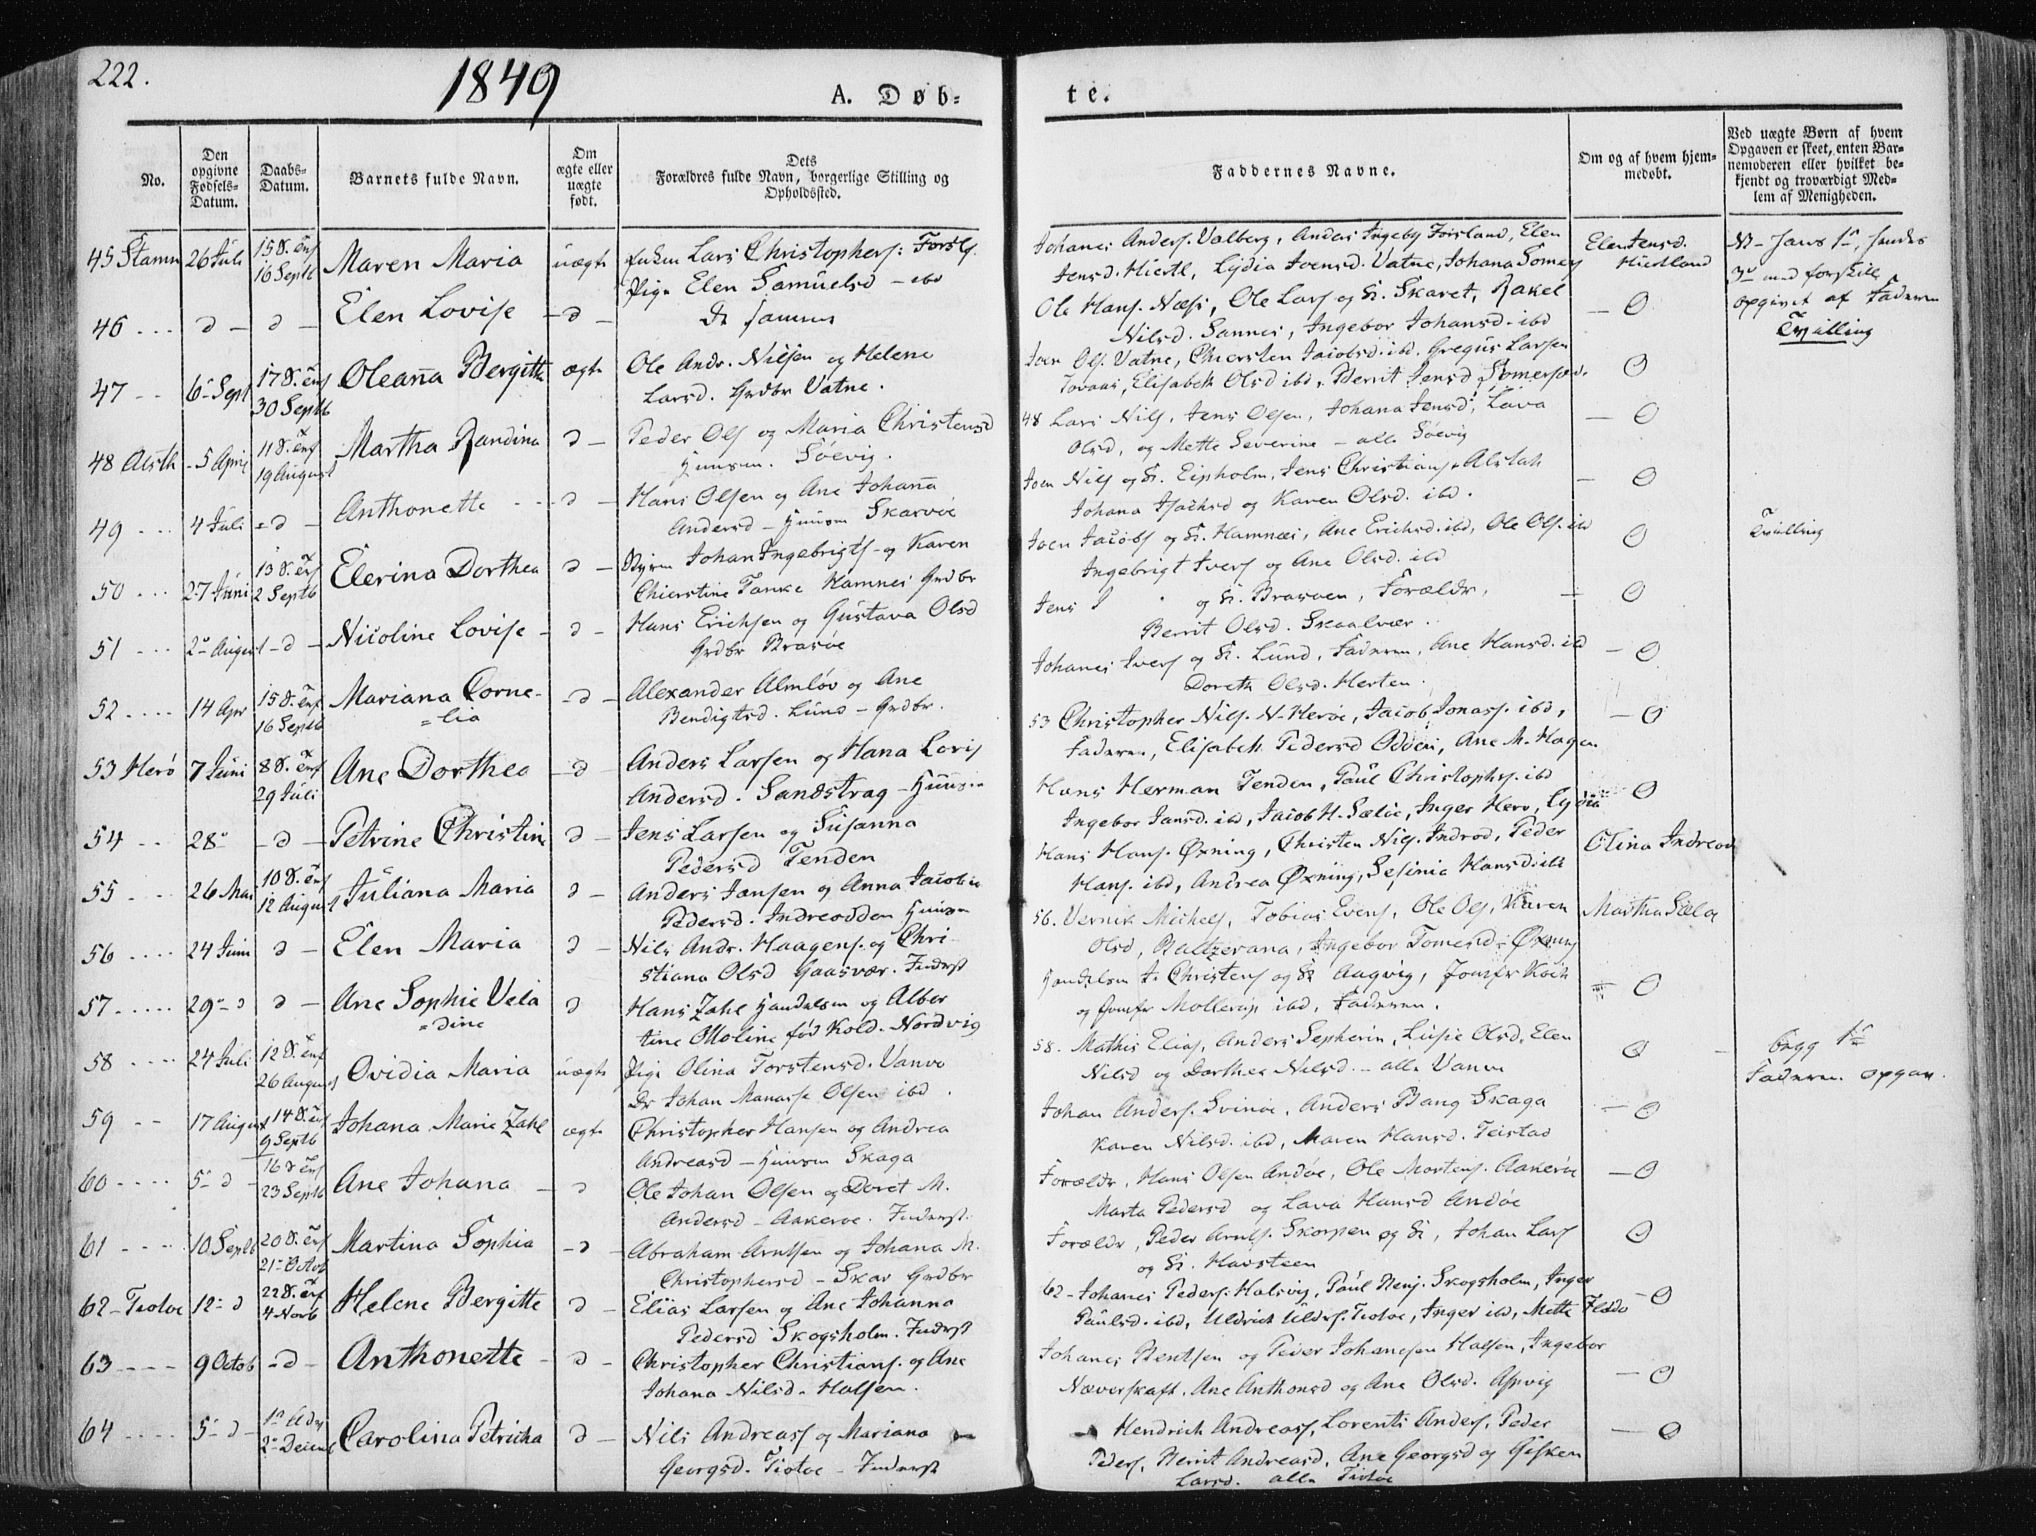 222.
1849
A. Døb-
te.
No.
Den opgivne Fødsels-Datum.
Daabs-Datum.
Barnets fulde Navn.
Om ægte eller uægte født.
Dets Forældres fulde Navn, borgerlige Stilling og Opholdssted.
Faddernes Navne.
Om og af hvem hjemmedøbt.
Ved uægte Børn af hvem Opgaven er skeet, enten Barnemoderen eller hvilket bekjendt og troværdigt Medlem af Menigheden.
45 Stamn 26 Juli 16 Septb Maren Maria uægte Lars Christophers: Forsl.
Pige Elen Samuelsd - ibd
Johanes Anders. Valberg, Anders Ingebr Forsland, Elen
Jensd. Hiertl, Lydia Ivensd. Vatne, Johana Somer
Elen Jensd.
46 d d Elen Lovise d
De samme
Ole Hans. Næss, Ole Lars og K. Skaret, Rakel
Nilsd. Sannes, Ingebor Johansd. ibd
O
opgivet af Faderen
Tvilling
47 6 Sept 17 S. Trf 30 Septb Oleana Bergitte ægte Ole Andr. Nilsen og Helene
Larsd. Grdbr Vatne.
Iven Ols. Vatne, Chiersten Jacobsd. ibd. Gregus Larsen
Tovaas, Elisabeth Olsd ibd, Berrit Jensd
O
48 Alsth 5 April 11 S. Trf 19 August Martha Randina d Peder Ols og Maria Christensd
Huusm. Søevig.
48 Lars Nils, Jens Olsen, Johana Jensd, Lava
Olsd, og Mette Severine - alle Søevig
O
49 4 Juli d Anthonette d Hans Olsen og Ane Johana
Andersd - Huusm Skarvøe
Iven Nils og K. Eipholm, Jens Christians. Alstah
Johana Isachsd og Karen Olsd. ibd.
O
50 27 Juni 13 S. Trf 2 Septb Elerina Dorthea d Johan Ingebrigts og Karen
Chierstine Tanke Hamnes Grdbr
Iven Jacobs og K. Hamnæs, Ane Erichsd. ibd, Ole Ols. ibd
Ingebrigt Ivers og Ane Olsd. ibd
O
Tvilling
51 2 August d Nicoline Lovise d Hans Erichsen og Gustava Olsd
Grdbr Brasøe
Jens og K. Brasøen, Forældr,
Berrit Olsd. Skaalvær.
O
52 14 Apr 15 S. Trf 16 Septb Mariana Corne-
=lia
d Alexander Almløv og Ane
Bendigtsd. Lund - Grdbr.
Johanes Ivers og K. Lund, Faderen, Ane Hansd. ibd
Doreth Olsd. Hesten.
O
53 Herø 7 Juni 8 S. Trf 29 Juli Ane Dorthea d Anders Larsen og Hana Lovis
Andersd. Sandstrag - Huusm
53 Christopher Nils. N-Herøe, Jacob Jonass. ibd,
Faderen, Elisabeth Pedersd Odden, Ane M. Hagen
O
54 28 d Petrine Christine d Jens Larsen og Susanna
Pedersd Tenden
Hans Herman Tenden, Paul Christophs. ibd
Ingebor Jansd. ibd, Jacob H. Sæløe, Inger Herø, Lydia
O
55 26 Mai 10 S. Trf 12 August Juliana Maria d Anders Jansen og Anna Jacobia
Pedersd. Indreodden Huusm
Hans Hans. Øxning, Christen Nils. Indreod, Peder
Hans. ibd, Andrea Øxning, Sesinia Hansd. ibd
Olina Indreod
56 24 Juni d Elen Maria d Nils Andr. Haagens. og Chri-
stiana Olsd Gaasvær. Inderst
56. Vernik Michels, Tobias Evens, Ole Ols, Karen
Olsd, Baltzerana, Ingebor Tomesd. Øxning
Martha Sæløe
57 29 d d Ane Sophie Vela
=dine
d Hans Zahl Handelsm og Alber
tine Moline fød Kold. Nordvig
Handelsm Christens og K Aagvig, Jomfr Koch
og Jomfr Mollerup ibd, Faderen.
O
58 24 Juli 12 S. Trf 26 August Ovidia Maria uægte Pige Olina Torstensd. Vanve
Dr Johan Manasse Olsen ibd.
58. Mathis Elias, Anders Sepherin, Lusie Olsd, Elen
Nilsd og Dorthea Nilsd. - alle Vanve
O
begg 1ste
Faderen opgav.
59 17 August 14 S. Trf 9 Septb Johana Marie Zahl ægte Christopher Hansen og Andrea
Andreasd - Huusm Skaga
Johan Anders. Svinøe, Anders Bang Skaga
Karen Nilsd. ibd, Maren Hansd. Teistad
O
60 5 d 16 S Trf 23 Septb Ane Johana d Ole Johan Olsen og Doret M.
Andersd - Aakerøe. Inderst.
Forældr, Hans Olsen Andøe, Ole Mortens. Aakerøe
Marta Pedersd og Lava Hansd Andøe
O
61 10 Septb 20 S. Trf 21 Octob Martina Sophia d Abraham Arntsen og Johana M.
Christophersd - Skar Grdbr
Forældr, Peder Arnts. Skorpen og K, Johan Lars
og K. Havsteen
O
62 - Tiotøe 12 d 22 S. Trf 4 Novb Helene Bergitte d Elias Larsen og Ane Johanna
Pedersd Skogsholm. Inderst
62 - Johanes Peders. Halsvig, Paul Benj. Skogsholm, Inger
Paulsd. ibd, Uldrich Uldrs. Tiotøe, Inger ibd, Mette
O
63 9 Octob d Anthonette d Christopher Christians. og Ane
Johana Nilsd. Halsen.
Johanes Bentsen og Peder Johanesen Halsen, Ingebor
Næverskaft. Ane Anthonsd og Ane Olsd. Aspvig
O
64 5 d 1 Adv 2 Decemb Carolina Petricka d Nils Andreass og Mariana
Georgsd. Tiotøe - Inderst
Hendrich Andreass, Lorents Anders, Peder
Peders, Berrit Andreasd, Ane Georgsd og Gisken
Larsd. alle Tiotøe
O